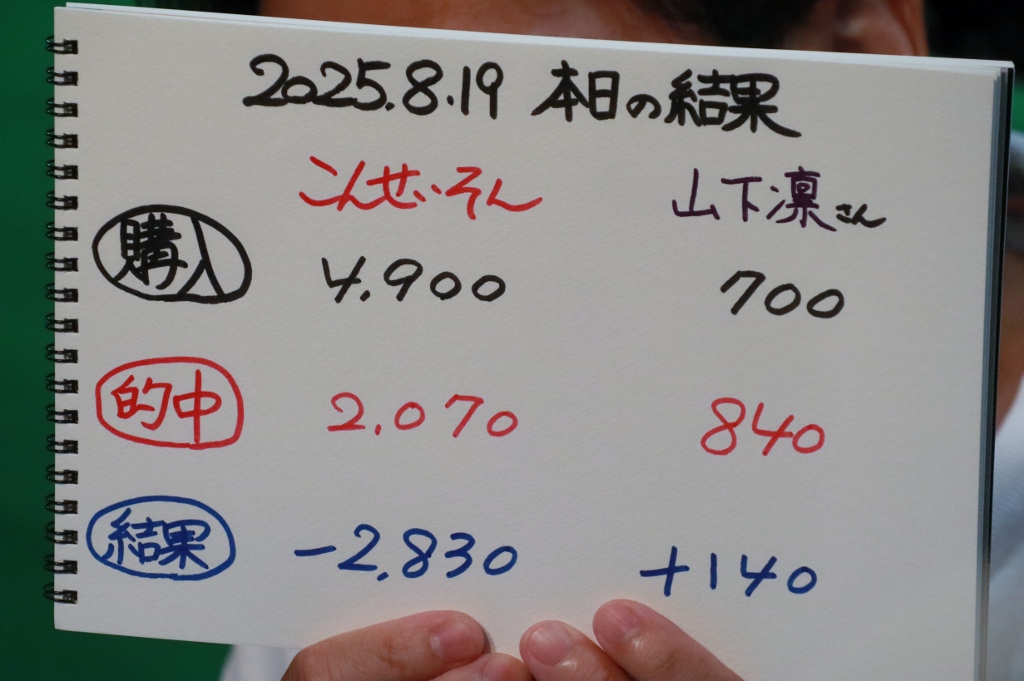 2025.8.19 本日の結果
こんせいそん 山下凛さん
購入 4,900 700
的中 2,070 840
結果 -2,830 +140